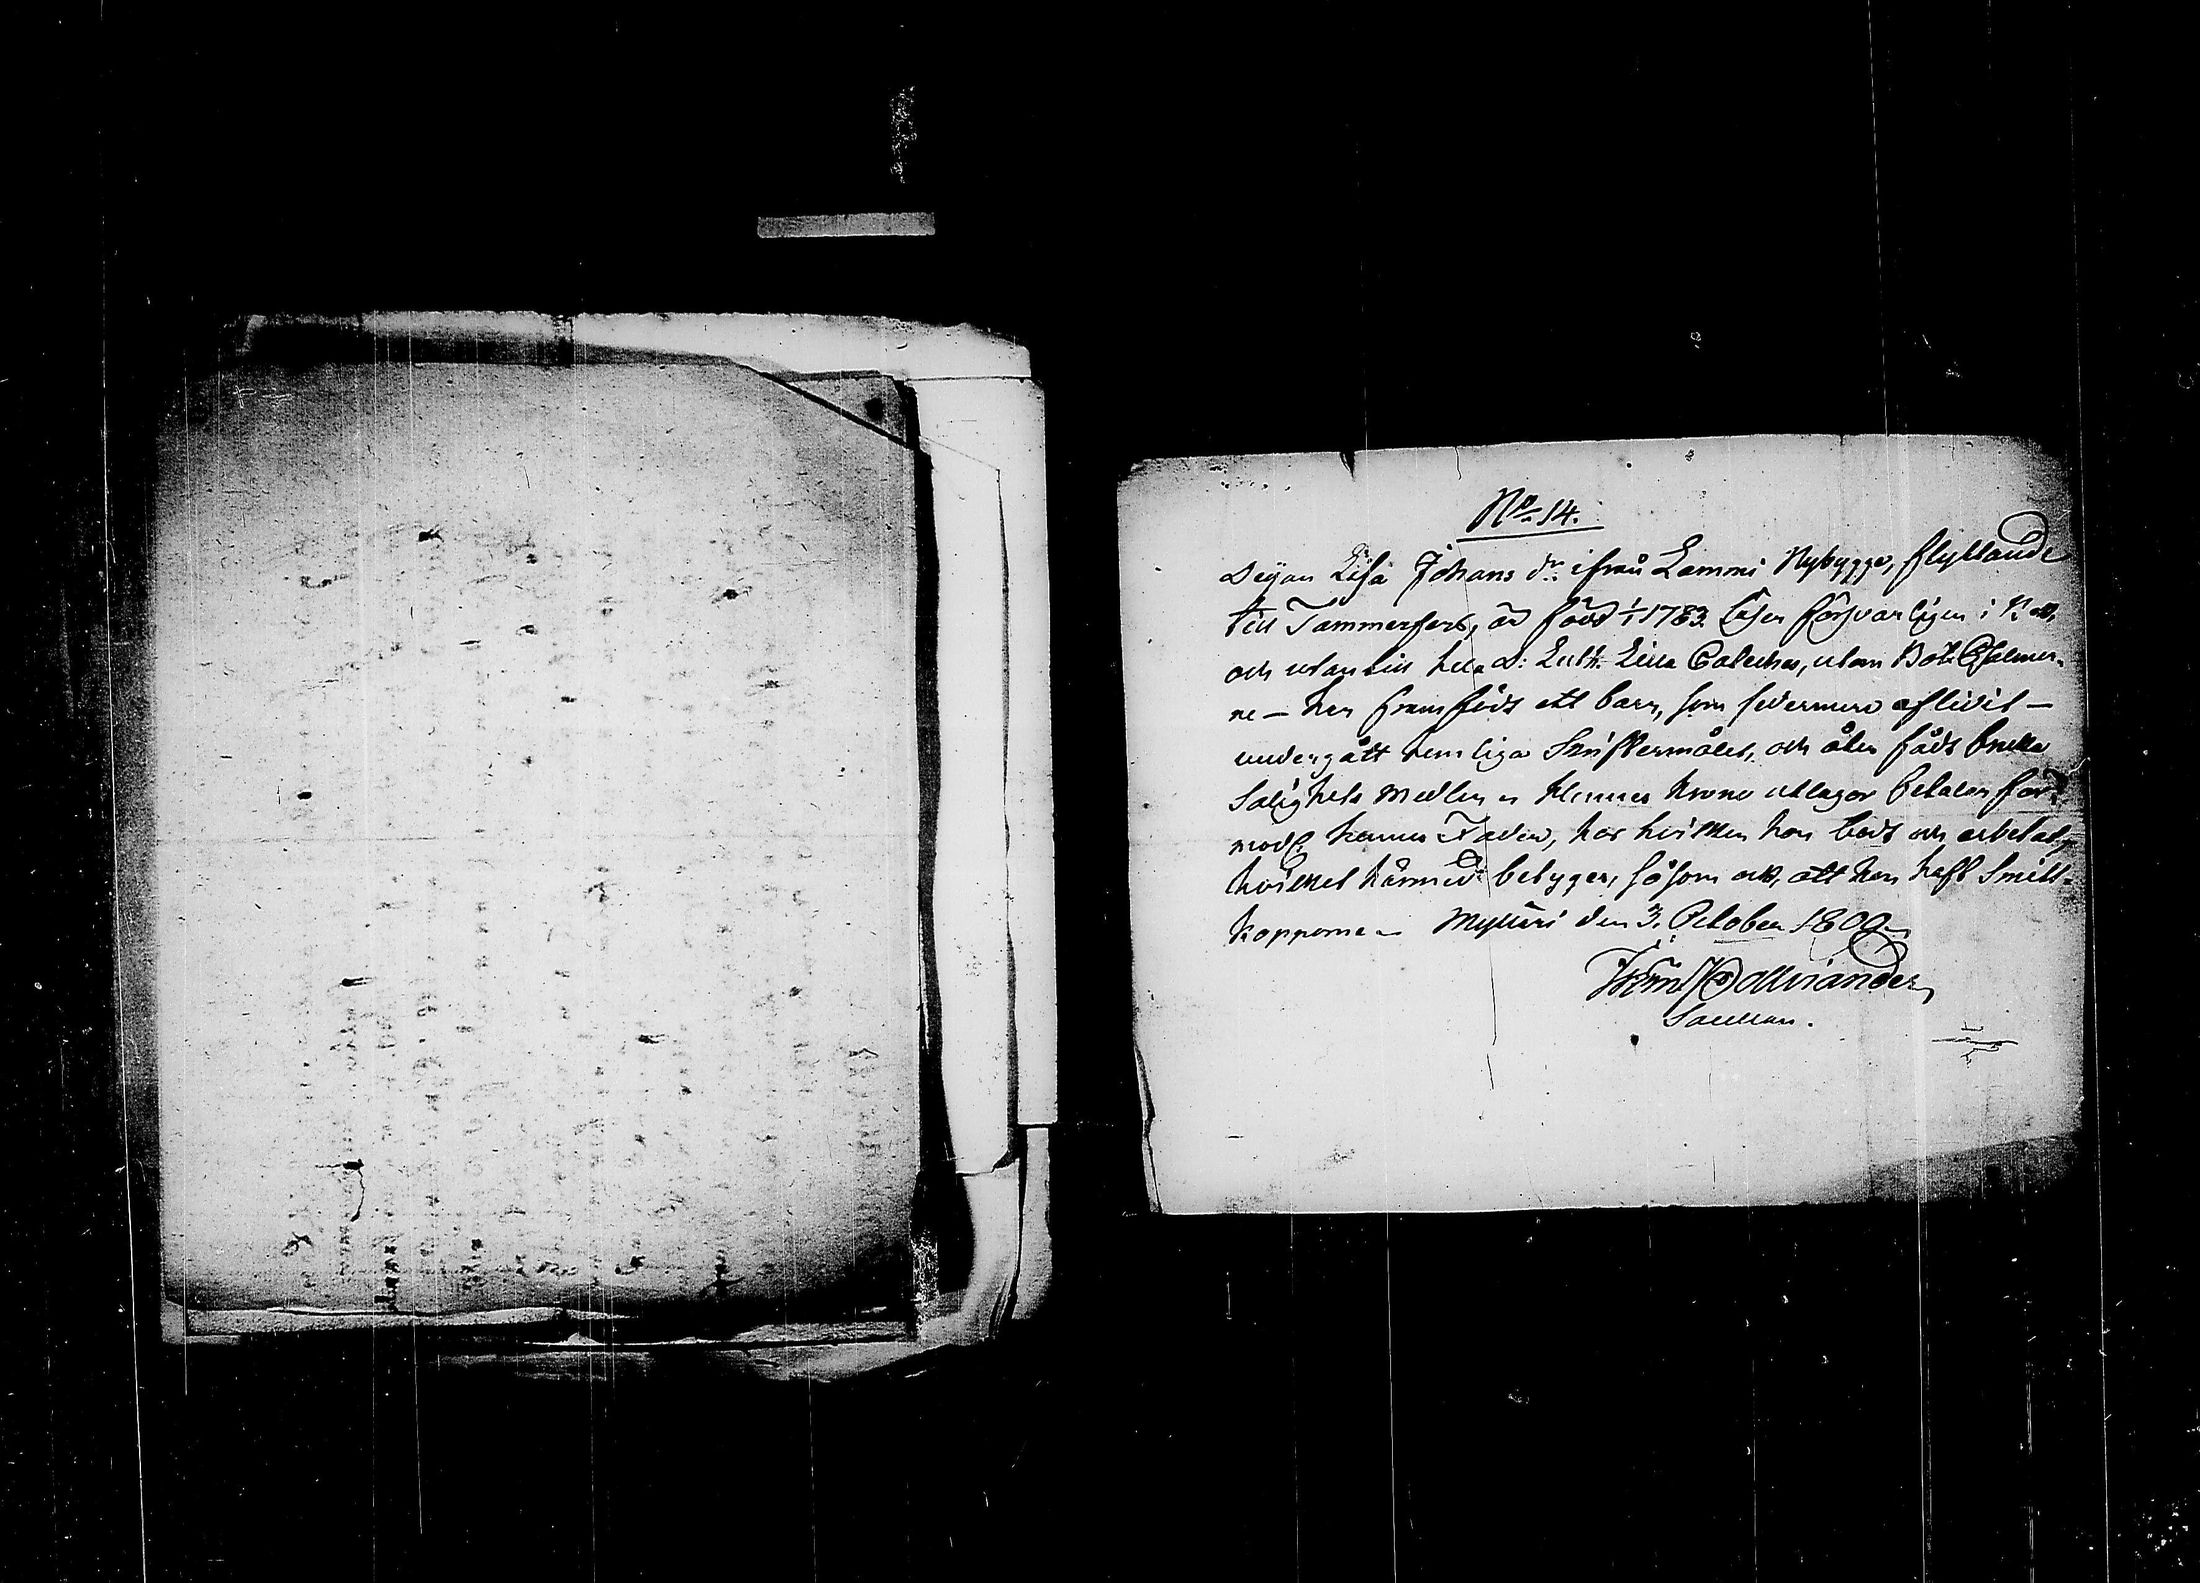 No 14.
Pigan Lisa Johans dr. ifrån Lammi Nybygge, flyttande
till Tammerfors, är född 1/1 1783. Läser försvarligen i Bok,
och utan till hela D: Luth. Lilla Cateches, utom Bot Psalmer-
ne — har framfödt ett barn, som sedermera aflidit —
undergått hemliga Skriftermålet, och åter fådt bruka
Salighets medlen — Hennes Krono utlagor betalar för-
modl. hennes Fader, hos hvilken hon bodt och arbetat,
hvilket härmed betygar, såsom ock, att hon haft Smitt-
kopporne — Mylleri den 3. October 1800
Sacellan.